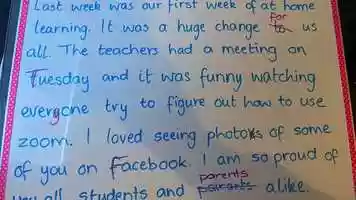 Last week was our first week of at home
learning. It was a huge change for us
all. The teachers had a meeting on
Tuesday and it was funny watching
everyone try to figure out how to use
zoom. I loved seeing photos of some
of you on Facebook. I am so proud of
you all students and parents alike.